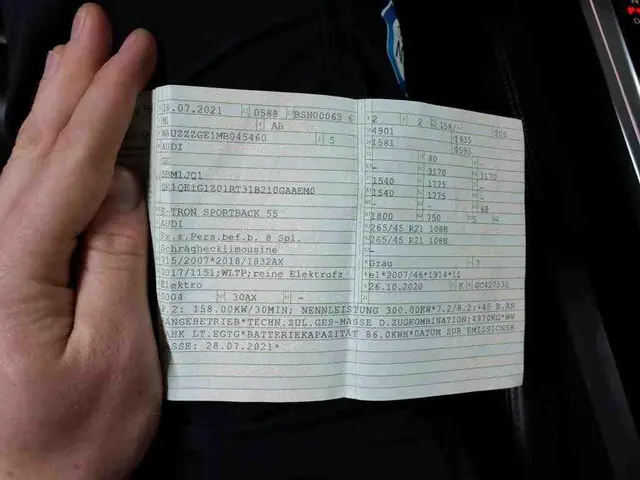 .07.2021 0588 BSN00063 6
M1 AB
WAUZZZGE1MB045460 5
AUDI
GE
SBM1JQ1
QE1QE1G1Z01RT31B210GAAEM0
E-TRON SPORTBACK 55
AUDI
Fz.z.Pers.bef.b. 8 Spl.
Schräghecklimousine
715/2007*2018/1832AX
2017/1151;WLTP;reine Elektrofz
Elektro
0004 30AX -
2 2 158/- 200
4901 1935
1581 2595
- 80
- 3170 3170
1540 1775 -
1540 1775 -
- - 68
1800 750 5 -
265/45 R21 108H
265/45 R21 108H
-
-
Grau 7
e1*2007/46*1914*11
26.10.2020 K
P.2: 158.00KW/30MIN; NENNLEISTUNG 300.00KW*7.2/8.2:+45 B.AN
ÄNGEBETRIEB*TECHN.ZUL.GES-MASSE D.ZUGKOMBINATION:4970KG*WW
AHK LT.EGTG*BATTERIEKAPAZITÄT 86.0KWH*DATUM ZUR EMISSIONSK
ASSE: 28.07.2021*